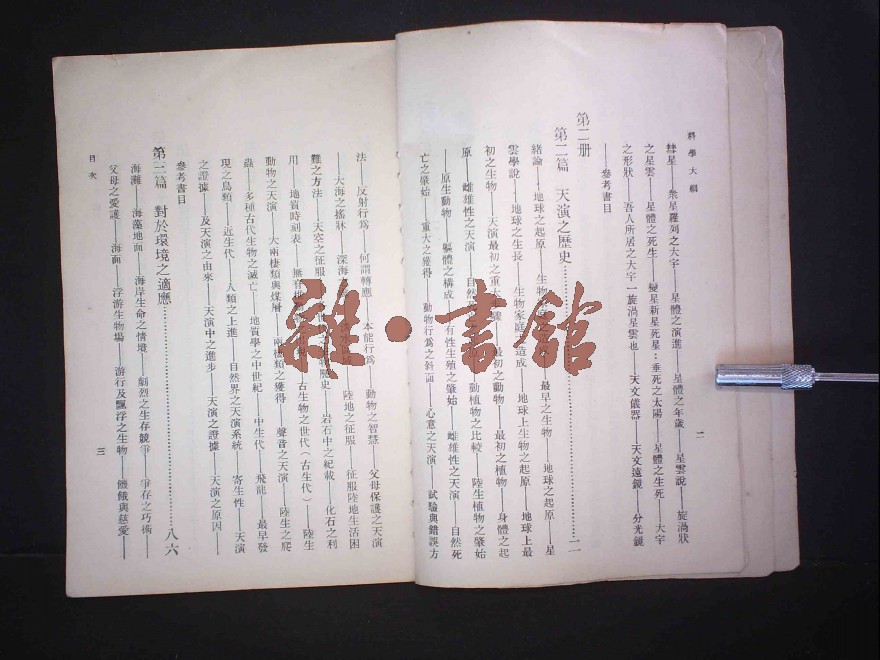 科學大綱
二
彗星——衆星羅列之大宇——星體之演進——星體之年歲——星雲說——旋渦狀
之星雲——星體之死生——變星新星死星：垂死之太陽——星體之生死——大宇
之形狀——吾人所居之大宇一旋渦星雲也——天文儀器——天文遠鏡——分光鏡
——參考書目
第二册
第二篇 天演之歷史…………一一
緒論——地球之起原——生物 造成——最早之生物——地球之起原——星
雲學說——地球之生長——生物家庭 造成——地球上生物之起原 地球上最
初之生物——天演最初之重大 ——最初之動物——最初之植物——身體之起
原——雌雄性之天演——自然 動植物之比較——陸生植物之肇始
——原生動物——軀體之構成 有性生殖之肇始——雌雄性之天演——自然死
亡之肇始——重大之獲得——動物行爲之斜面——心意之天演——試驗與錯誤方
法——反射行爲——何謂轉應——本能行爲——動物之智慧——父母保護之天演
——大海之搖牀——深海 水 陸地之征服——征服陸地生活困
難之方法——天空之征服 歷史——岩石中之紀載——化石之利
用——地質時刻表——無脊 古生物之世代（古生代）——陸生
動物之天演——大兩棲類與煤層——兩棲類之獲得——聲音之天演——陸生之爬
蟲——多種古代生物之滅亡——地質學之中世紀——中生代——飛龍——最早發
現之鳥類——近生代——人類之上進——自然界之天演系統——寄生性——天演
之證據——及天演之由來——天演中之進步——天演之證據——天演之原因——
參考書目
第三篇 對於環境之適應…………八六
海灘——海藻地面——海岸生命之情境——劇烈之生存競爭——爭存之巧術——
父母之愛護——海面——浮游生物場——游行及飄浮之生物——饑餓與慈愛——
目次
三
雜·書館